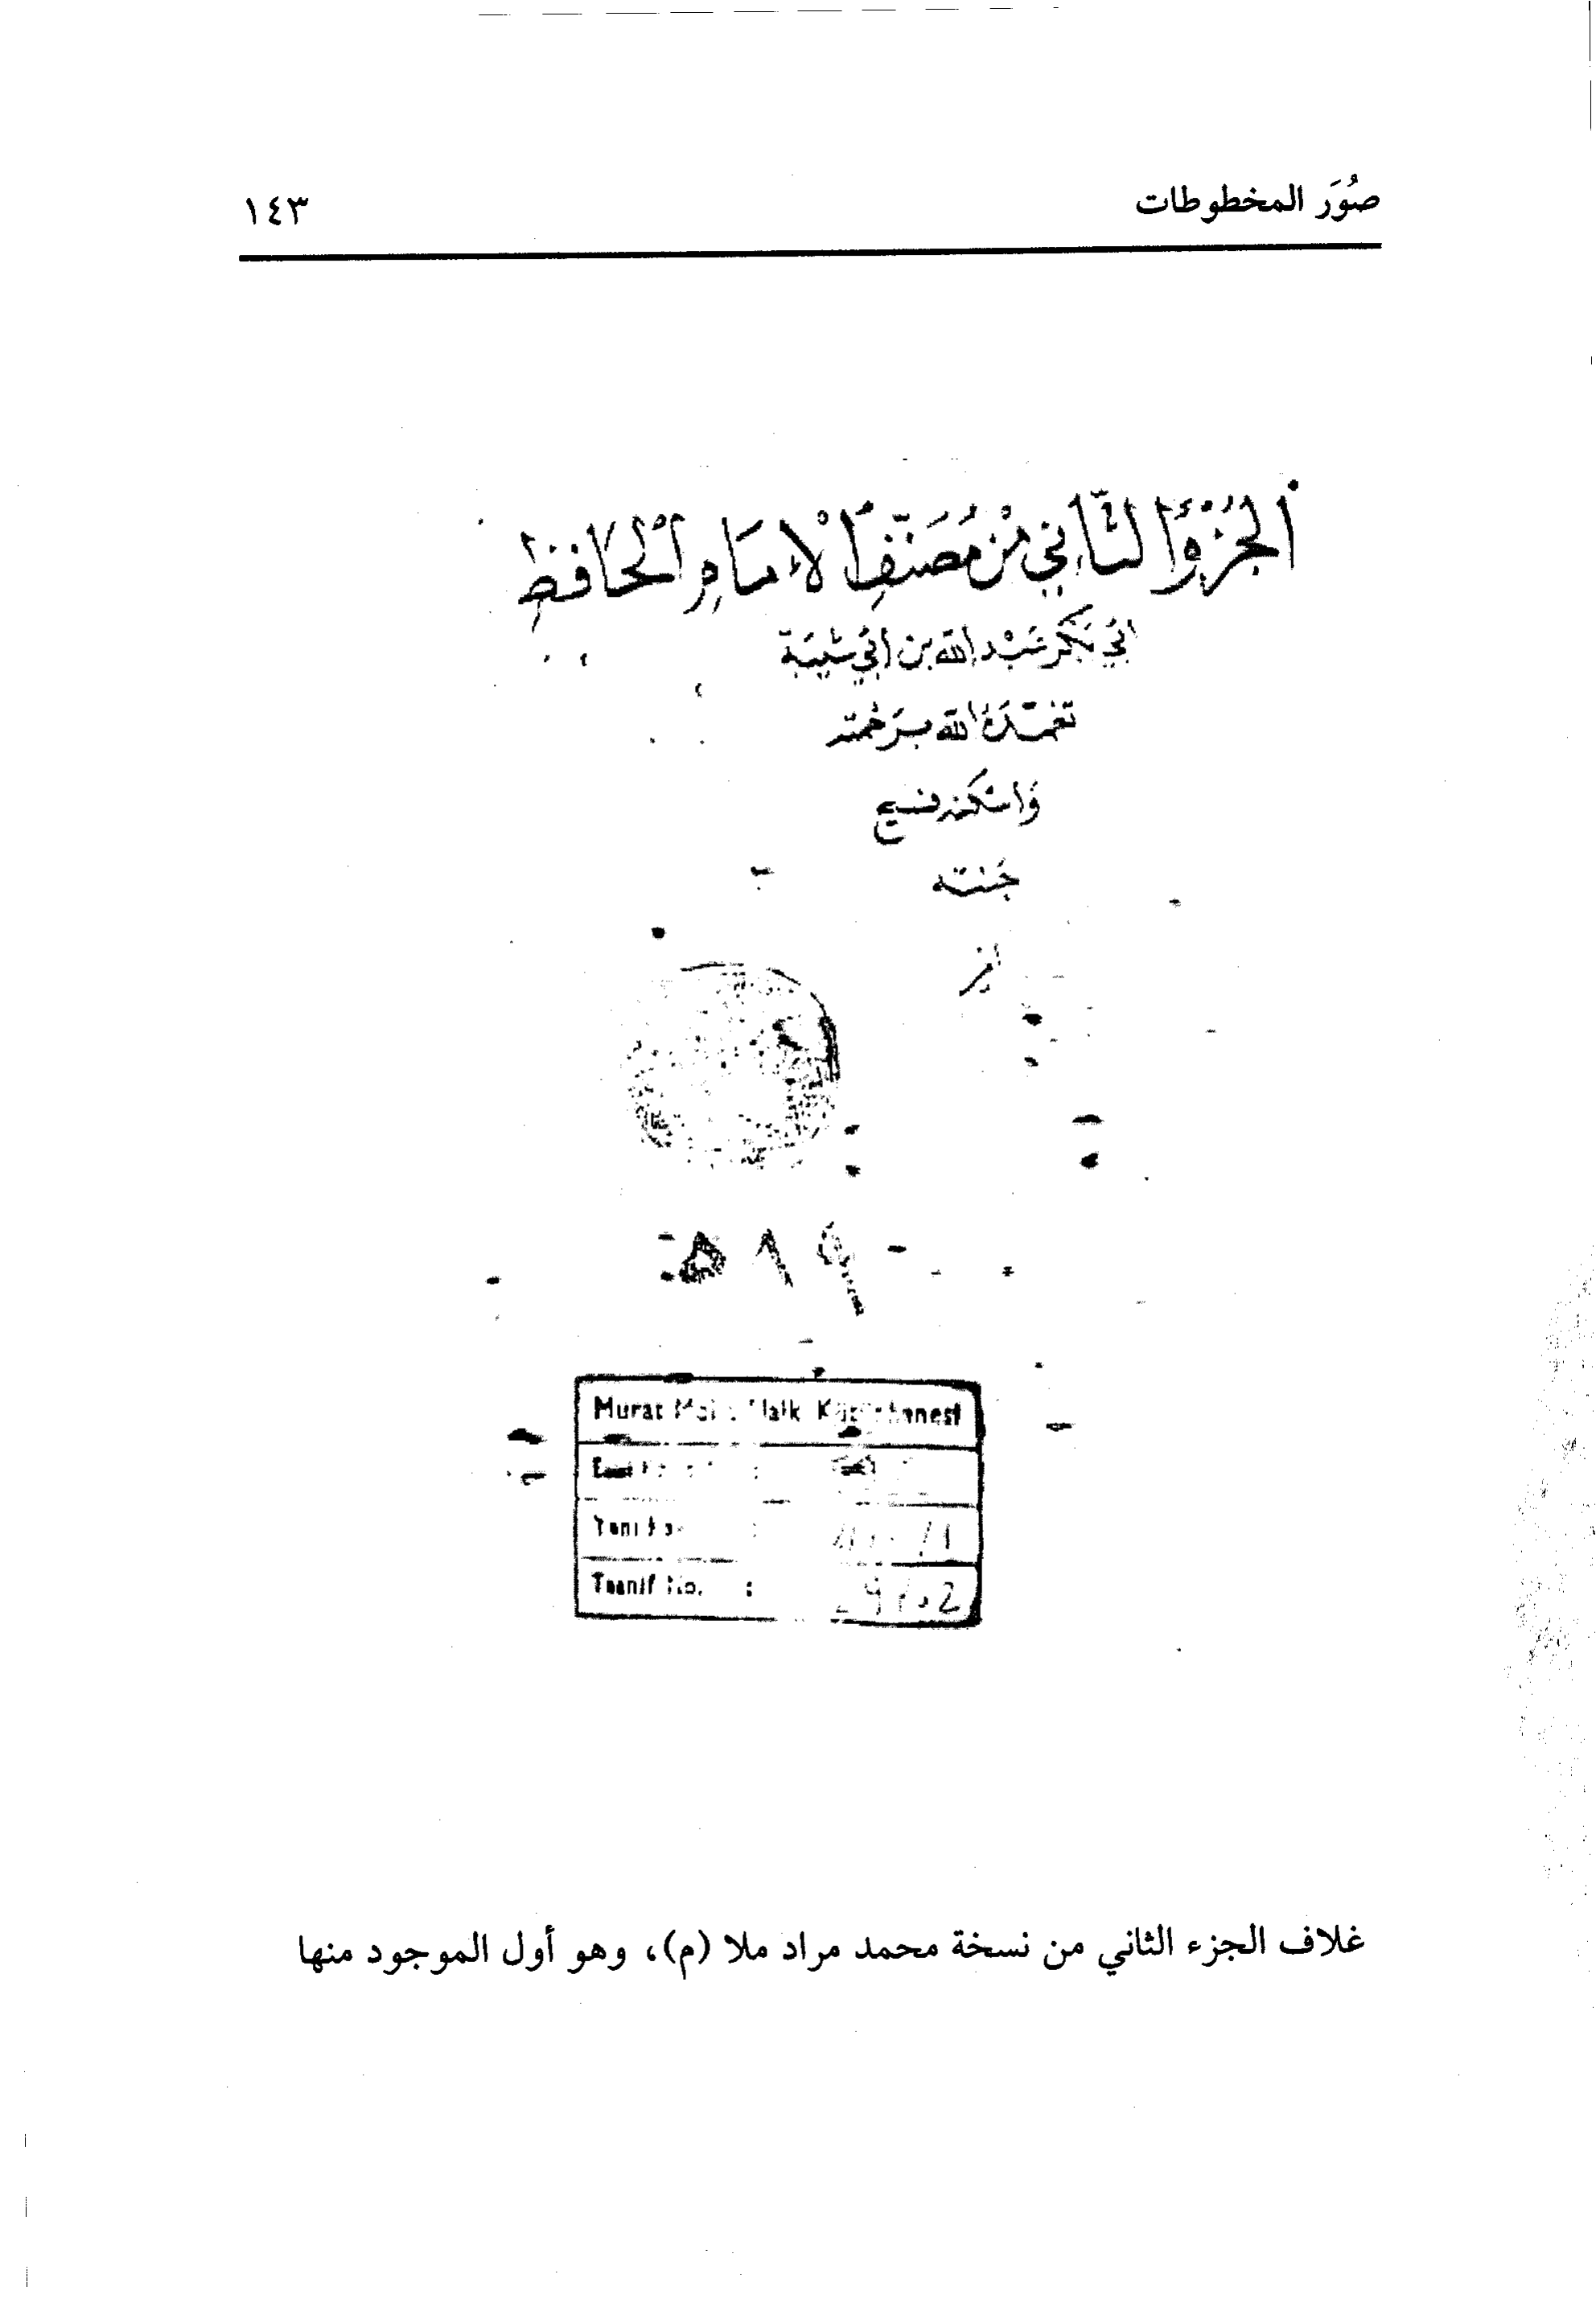 صُوَر المخطوطات
١٤٣
اَلجُزْؤُ الثَّاني مِنْ مُصَنَّفِ الإمَامِ الْحَافِظِ
أبي بَكْر عَبْد الله بن أبي شَيْبَة
تغمّدَهُ الله برَحْمته
وَاسْكنه فسيح
جَنته
٥١٩
Murat Halk
:
:
Tasnif No. :
غلاف الجزء الثاني من نسخة محمد مراد ملا (م)، وهو أول الموجود منها